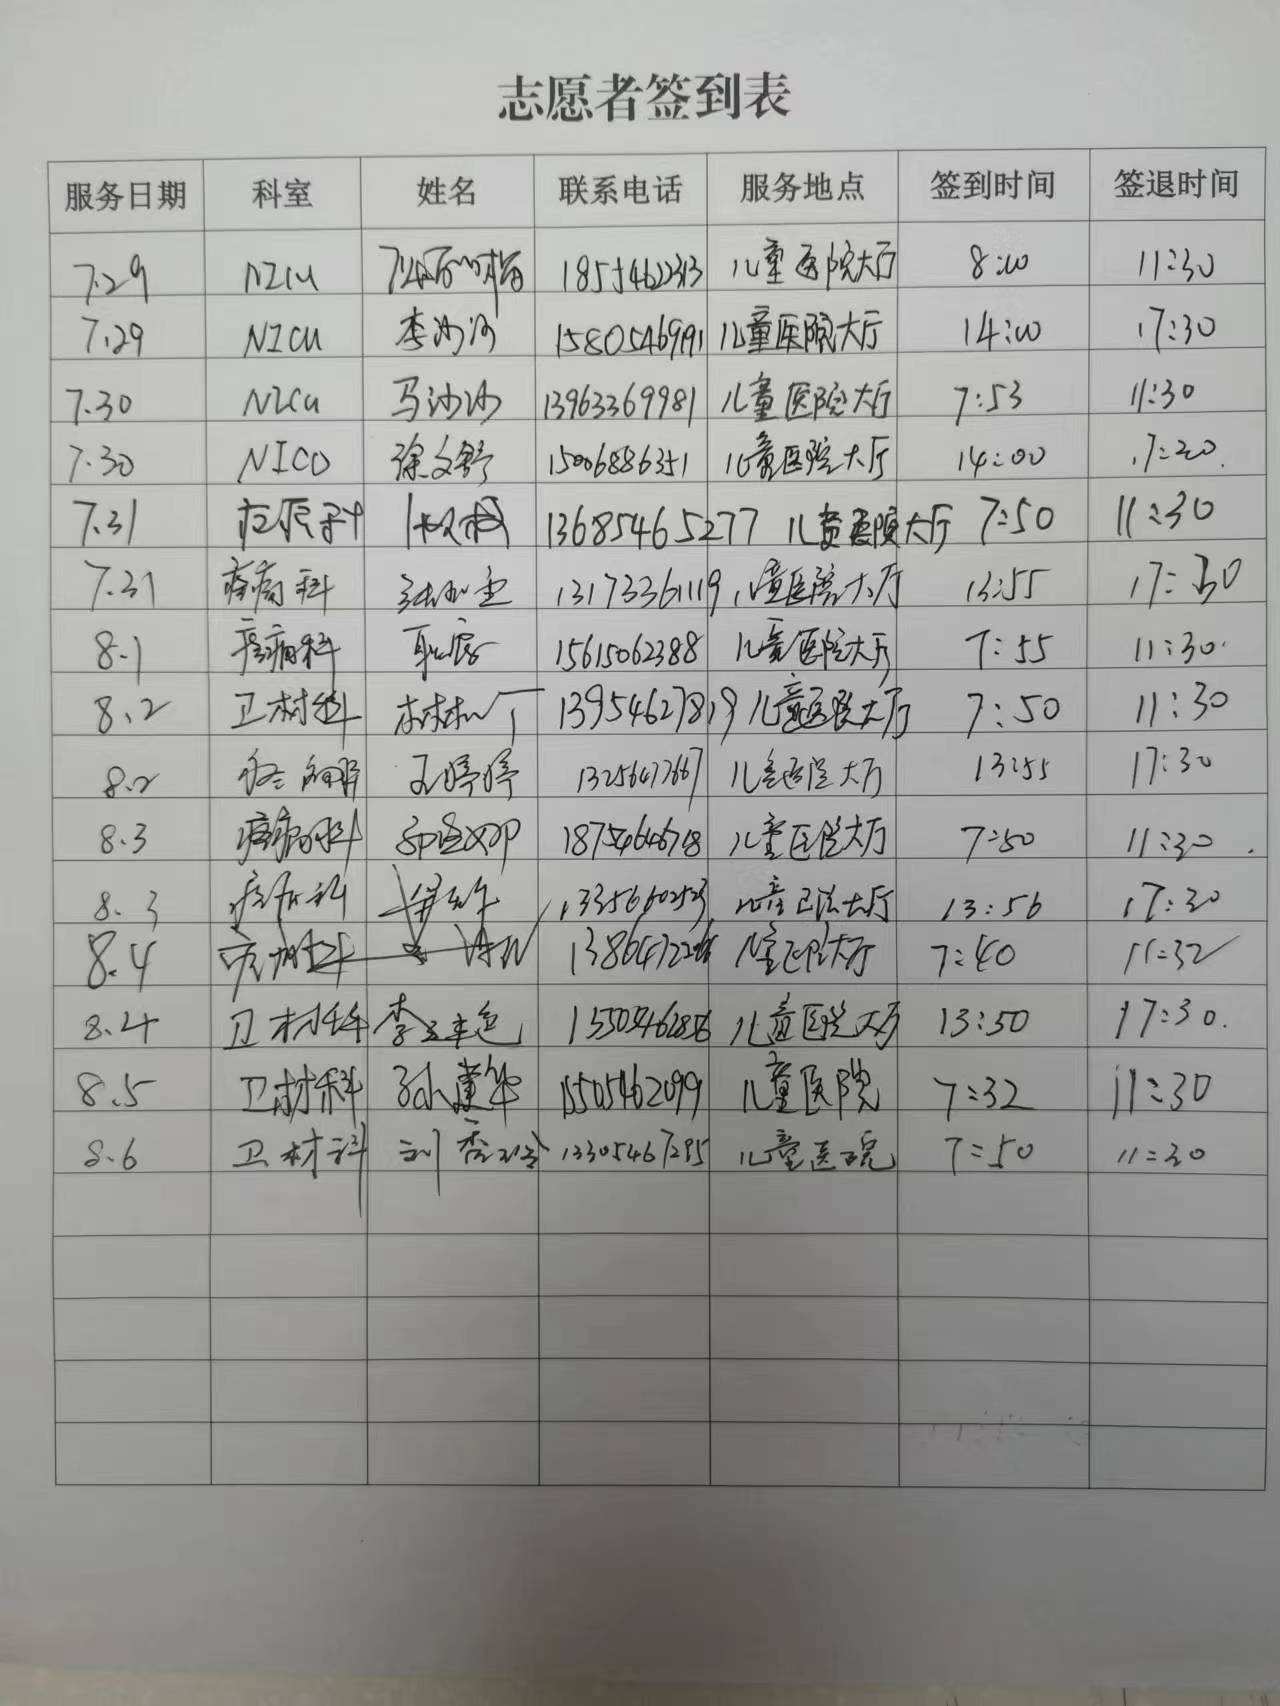 志愿者签到表
服务日期 科室 姓名 联系电话 服务地点 签到时间 签退时间
7.29 NICU 18554622313 儿童医院大厅 8:00 11:30
7.29 NICU 李沙沙 15805469191 儿童医院大厅 14:00 17:30
7.30 NICU 马沙沙 13963369981 儿童医院大厅 7:53 11:30
7.30 NICU 徐文舒 15006886351 儿童医院大厅 14:00 17:30
7.31 13685465277 儿童医院大厅 7:50 11:30
7.31 疼痛科 13173361119 儿童医院大厅 13:55 17:30
8.1 疼痛科 15615062388 儿童医院大厅 7:55 11:30
8.2 卫材科 13954627819 儿童医院大厅 7:50 11:30
8.2 婷婷 13256472667 儿童医院大厅 13:55 17:30
8.3 疼痛科 儿童医院大厅 7:50 11:30
8.3 儿童医院大厅 13:56 17:30
8.4 儿童医院大厅 7:40 11:32
8.4 卫材科 儿童医院大厅 13:50 17:30
8.5 卫材科 孙建华 15505462099 儿童医院 7:32 11:30
8.6 卫材科 刘香玲 13305467295 儿童医院 7:50 11:30